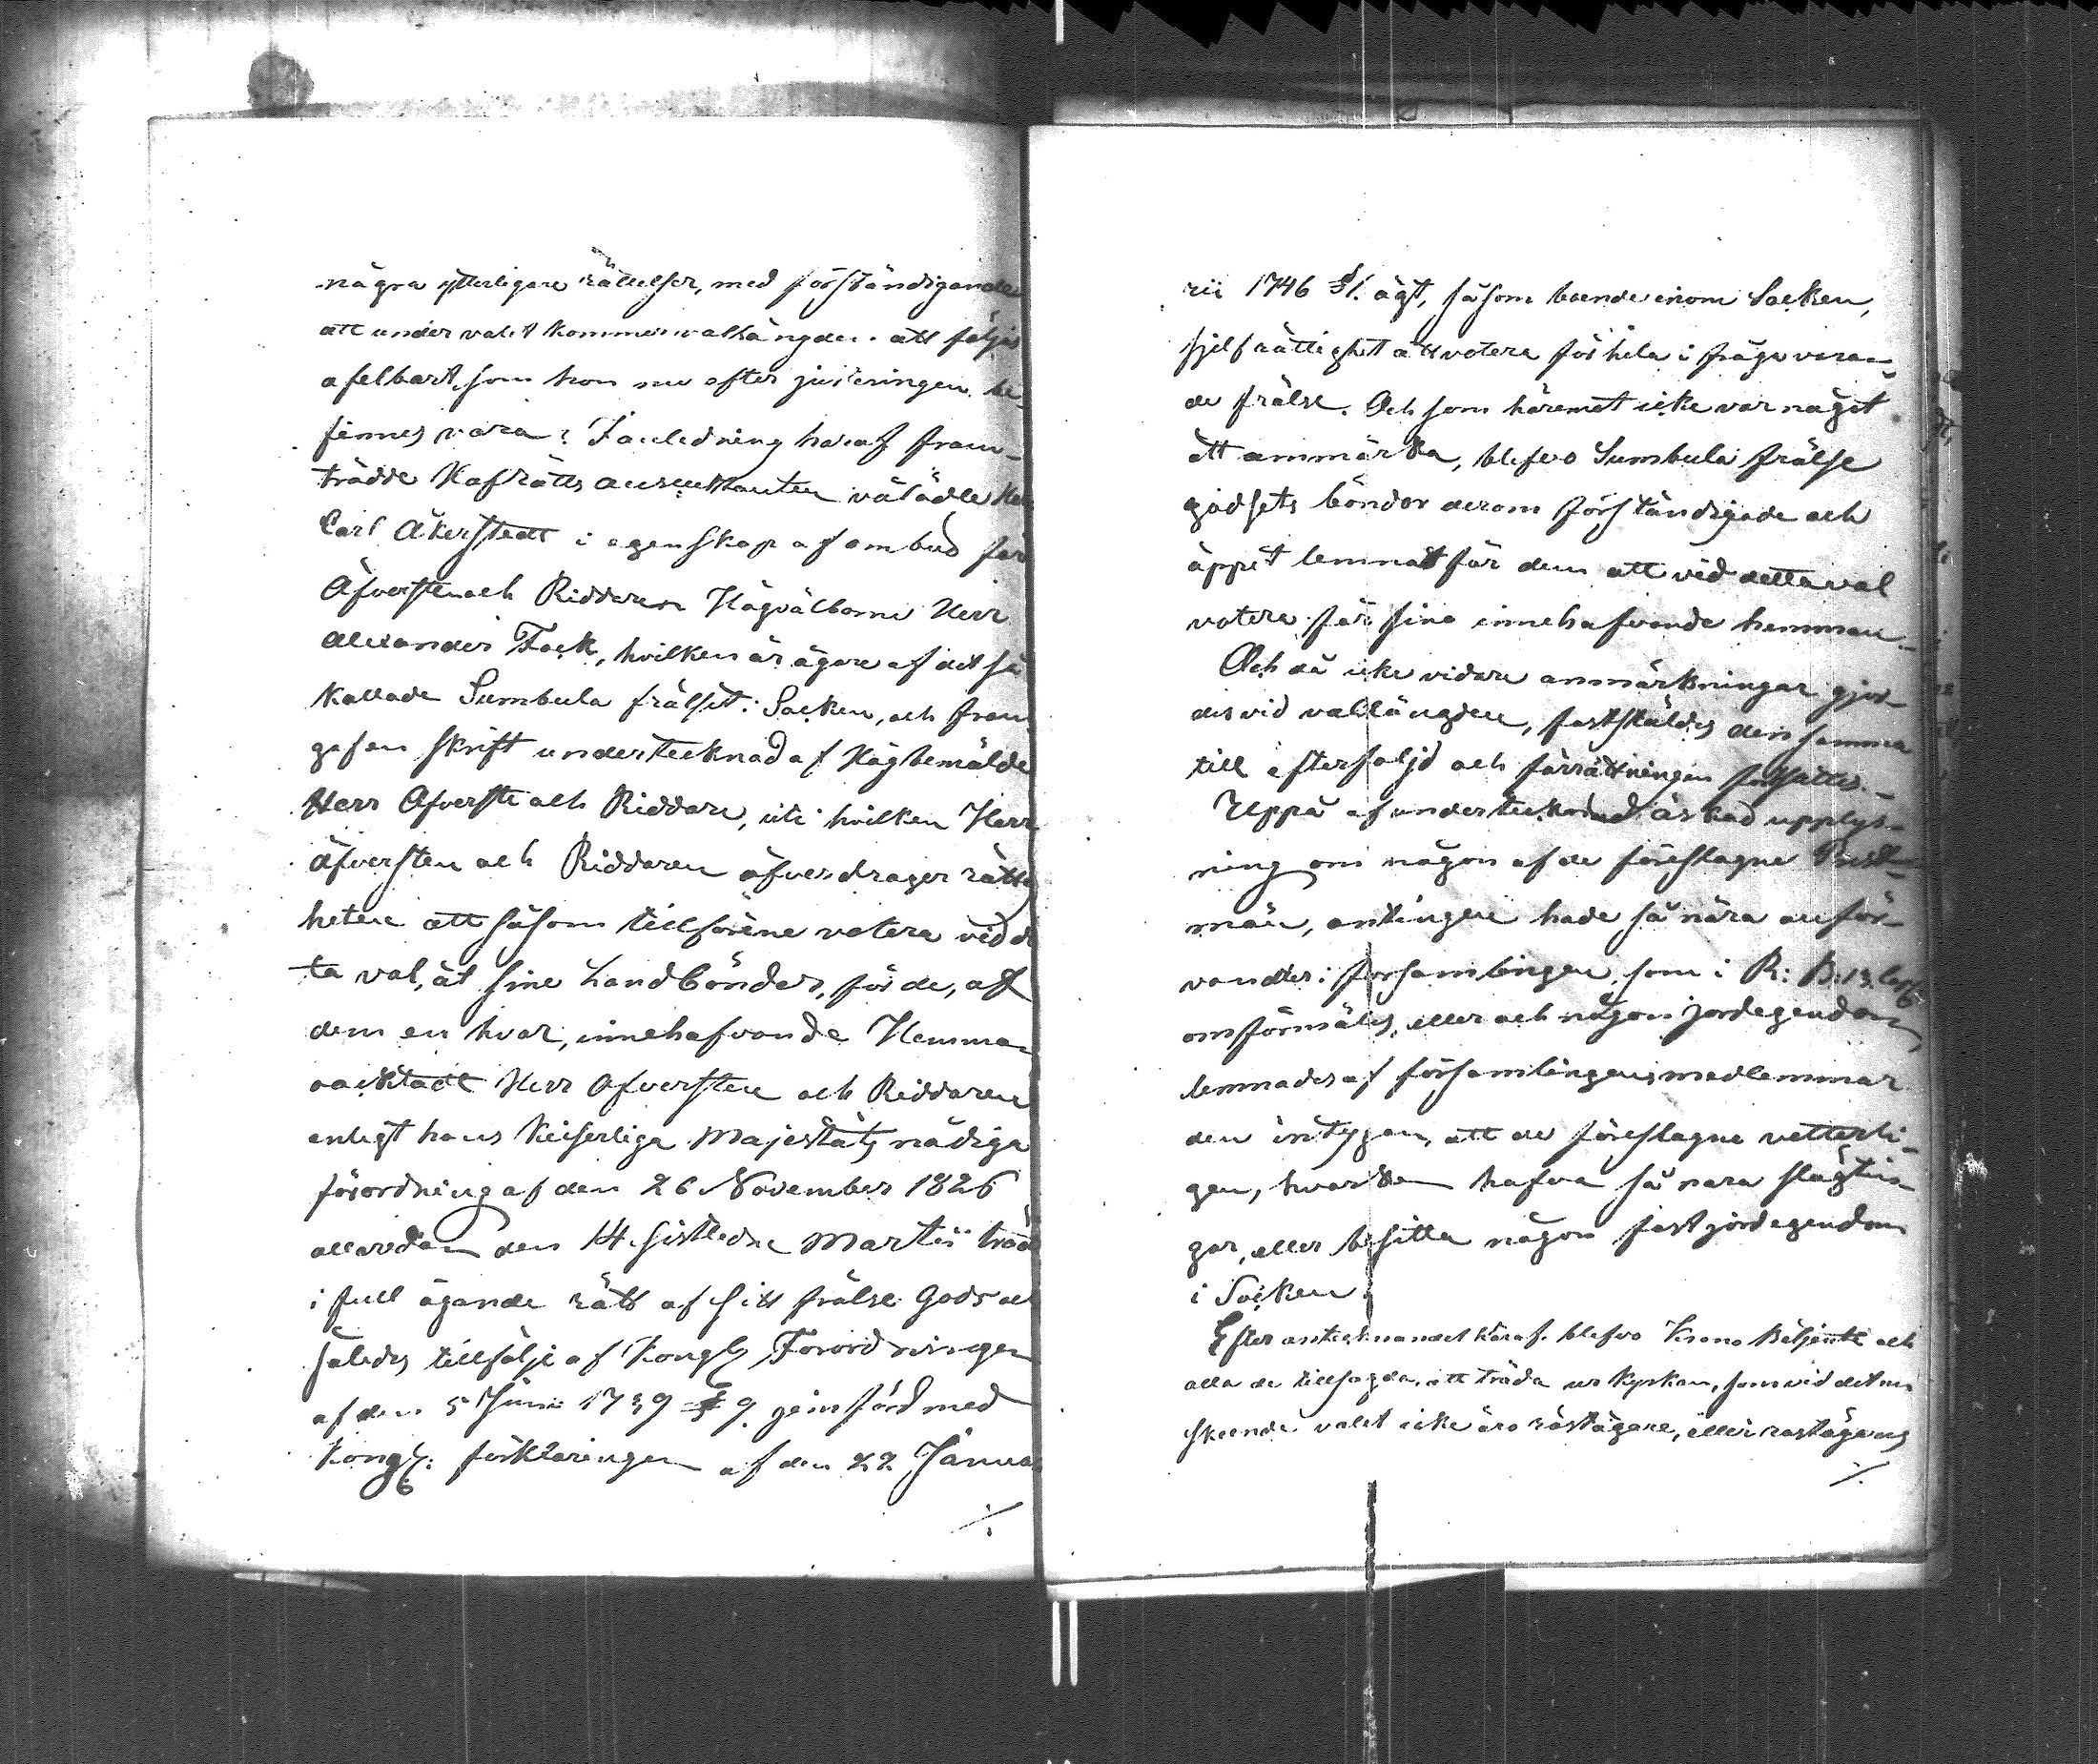 några ytterligare rättelser, med förständigande
att under valet kommer vallängden att följas
afelbart, som hon nu efter justeringen be-
finnes vara. I anledning häraf fram-
trädde Hafrätts auscultanten välädle Herr
Carl Åkerstedt i egenskap af ombud för
Öfversten och Riddaren Högvälborne Herr
Alexander Fock, hvilken är ägare af det så
kallade Sumbula frälset i Socken, och fram
gaf en skrift undertecknad af Högbemälde
Herr Öfverste och Riddare, uti hvilken Herr
Öfversten och Riddaren öfverdrager rättig
heten att såsom tillförene votera vid de
ta val, åt sine Landbönder, för de, af
dem en hvar, innehafvande Hemma
oacktadt Herr Öfversten och Riddaren
enligt hans Keiserliga Majestäts nådiga
förordning af den 26 November 1826
allaredan den 14 sistledne Martii träd
i full ägande rätt af sitt frälse Gods och
således tillfölje af Kongl Förordningen
af den 5 Junii 1739 § 9 jemförd med
Kongl: förklaringen af den 22 Janua
./.
rii 1746 §1. ägt, såsom boende inom Socken,
sjelf rättighet att votera för hela i fråga varan-
de frälse. Och som häremot icke var något
att anmärka, blefvo Sumbula frälse
godsets bönder derom förständigade och
öppet lemnat för dem att vid detta val
votera för sina innehafvande hemman.-
Och då icke vidare anmärkningar gjor-
des vid vallängden, fastställdes den samma
till efterföljd och förrättningen fortsattes.-
Uppå af undertecknad äskad upplys-
ning om någon af de föreslagne Prest-
män, antingen hade så nära anför-
vandter i församlingen, som i R: B: 13. Cap
omförmäles, eller och någon jordegendom
lemnades af församlingens medlemmar
den intygan, att de föreslagne vetterli-
gen, hvarken hafva så nära slägtin-
gar, eller besitta någon fast jordegendom
i Socken.
Efter antecknandet häraf blefvo Krono Betjente och
alla de tillsagda, att träda ur kyrkan, som vid det nu
skeende valet icke äro röstägare, eller rostägares
./.